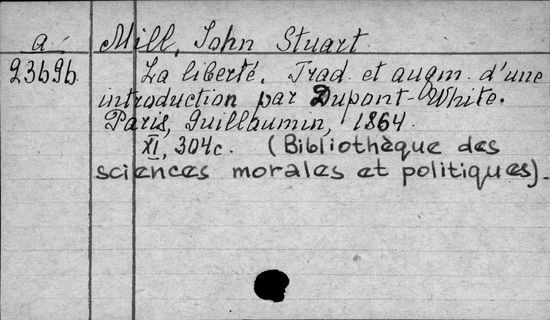 a Mill, John Stuart
23696. La liberté. Trad. et augm. d'une
introduction par Dupont-White.
Paris, Guillaumin, 1864.
XI, 304c. (Bibliothèque des
sciences morales et politiques).